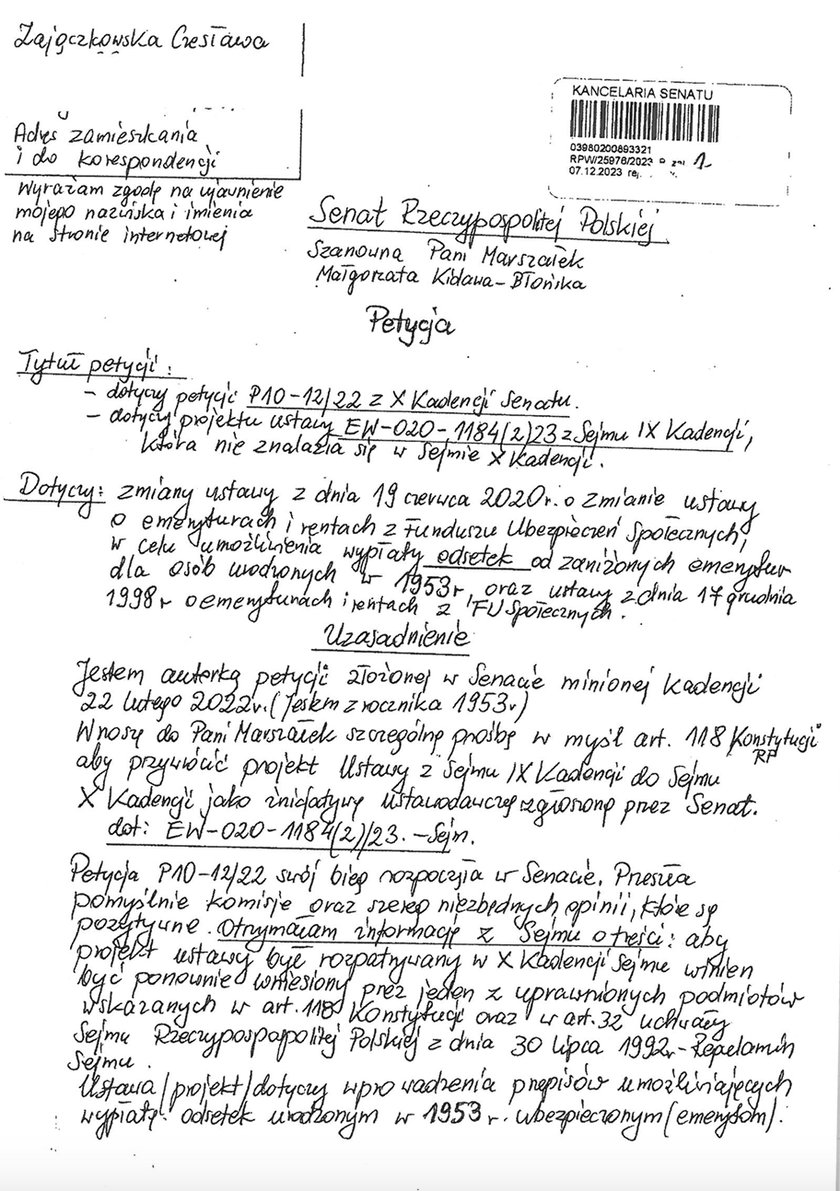 Zajączkowska Czesława
Adres zamieszkania
i do korespondencji
Wyrażam zgodę na ujawnienie
mojego nazwiska i imienia
na stronie internetowej
KANCELARIA SENATU
03980200893321
RPW/25976/2023 P
07.12.2023 rej.
1
Senat Rzeczypospolitej Polskiej
Szanowna Pani Marszałek
Małgorzata Kidawa-Błońska
Petycja
Tytuł petycji:
- dotyczy petycji P10-12/22 z X Kadencji Senatu.
- dotyczy projektu ustawy EW-020-1184(2)23 z Sejmu IX Kadencji,
która nie znalazła się w Sejmie X Kadencji.
Dotyczy: zmiany ustawy z dnia 19 czerwca 2020r. o zmianie ustawy
o emeryturach i rentach z Funduszu Ubezpieczeń Społecznych,
w celu umożliwienia wypłaty odsetek od zaniżonych emerytur
dla osób urodzonych w 1953r, oraz ustawy z dnia 17 grudnia
1998r o emeryturach i rentach z FU Społecznych.
Uzasadnienie
Jestem autorką petycji złożonej w Senacie minionej kadencji
22 lutego 2022r. (Jestem z rocznika 1953r)
Wnoszę do Pani Marszałek szczególną prośbę w myśl art. 118 Konstytucji
RP
aby przywrócić projekt Ustawy z Sejmu IX Kadencji do Sejmu
X Kadencji jako inicjatywę ustawodawczą zgłoszoną przez Senat.
dot: EW-020-1184(2)/23. - Sejm.
Petycja P10-12/22 swój bieg rozpoczęła w Senacie. Przeszła
pomyślnie komisje oraz szereg niezbędnych opinii, które są
pozytywne. Otrzymałam informację z Sejmu o treści: aby
projekt ustawy był rozpatrywany w X Kadencji Sejmu winien
być ponownie wniesiony przez jeden z uprawnionych podmiotów
wskazanych w art. 118 Konstytucji oraz w art. 32 uchwały
Sejmu Rzeczypospopolitej Polskiej z dnia 30 lipca 1992r - Regulamin
Sejmu.
Ustawa /projekt/ dotyczy wprowadzenia przepisów umożliwiających
wypłatę odsetek urodzonym w 1953r. ubezpieczonym (emerytom).